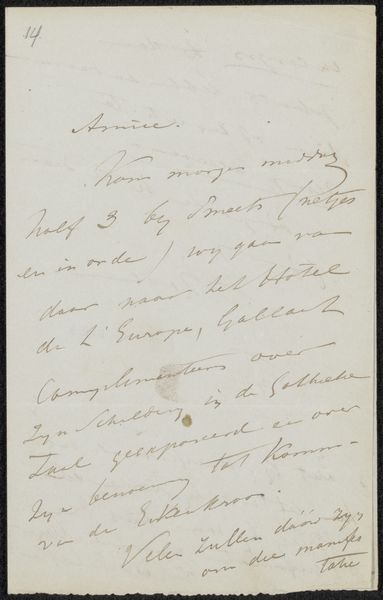 14
Amice.
Kom morgen middag
half 3 by Smeets (netjes
en in orde) wy gaan van
daar naar het Hotel
de L'Europe, Gallait
Complimenteren over
zyn Schildery in de Gothische
Zaal geexposeerd en over
zyn benoeming tot Komm-
van de Eikenkroon.
Velen zullen dáár zyn
om die manifes
tatie